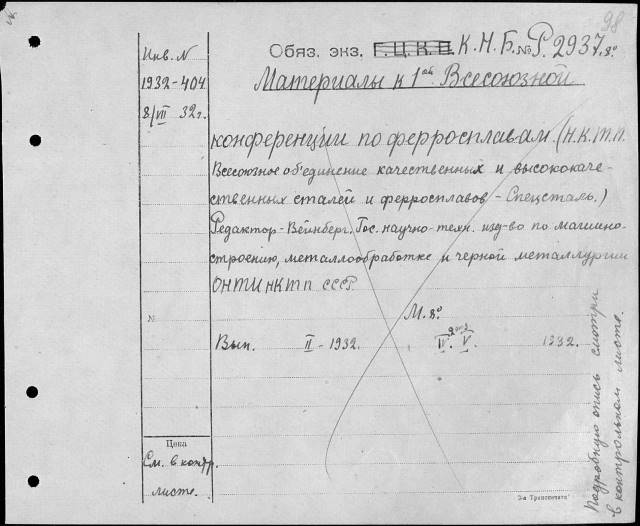 98
Инв. N
1932-404
8/VII 32г.
Обяз. экз. Г.Ц.К.П. К.Н.Б. № Р. 2937. 8°
Материалы к 1ой Всесоюзной
конференции по ферросплавам. (Н.К.Т.П.
Всесоюзное об'единение качественных и высококаче-
ственных сталей и ферросплавов - Спецсталь.)
Редактор - Вейнберг. Гос. научно-техн. изд-во по машино-
строению, металлообработке и черной металлургии
ОНТИ НКТП СССР.
М. 8°
№
Вып. II - 1932. IV. V. 1932.
Цена
См. в контр.
листе.
Подробную опись смотри
в контрольном листе.
3-я Транспечати